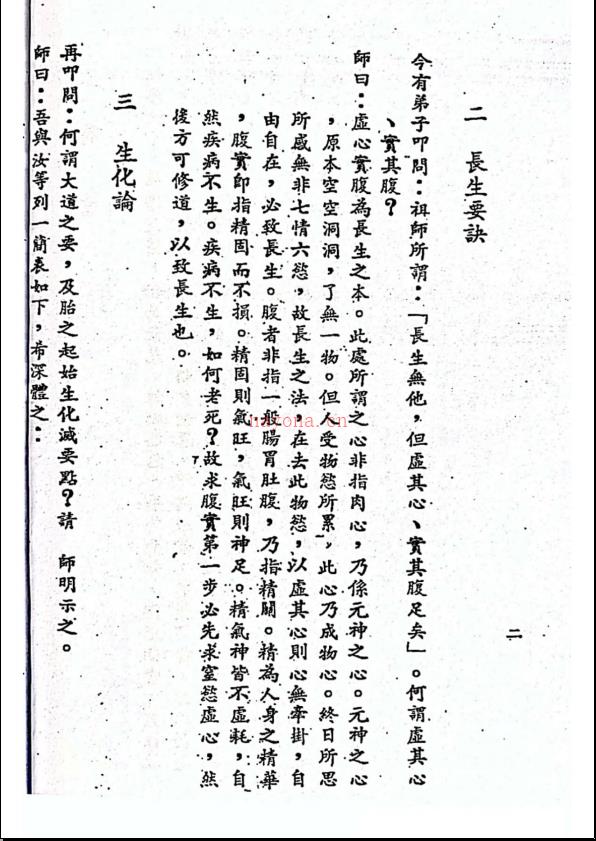 二
二　長生要訣
今有弟子叩問：祖師所謂：「長生無他，但虛其心、實其腹足矣」。何謂虛其心
、實其腹？
師曰：虛心實腹為長生之本。此處所謂之心非指肉心，乃係元神之心。元神之心
，原本空空洞洞，了無一物。但人受物慾所累，此心乃成物心。終日所思
所感無非七情六慾，故長生之法，在去此物慾，以虛其心則心無牽掛，自
由自在，必致長生。腹者非指一般腸胃肚腹，乃指精關。精為人身之精華
，腹實即指精固而不損。精固則氣旺，氣旺則神足。精氣神皆不虛耗，自
然疾病不生。疾病不生，如何老死？故求腹實第一步必先求窒慾虛心，然
後方可修道，以致長生也。
三　生化論
再叩問：何謂大道之要，及胎之起始生化滅要點？請　師明示之。
師曰：吾與汝等列一簡表如下，希深體之：
nayona.cn